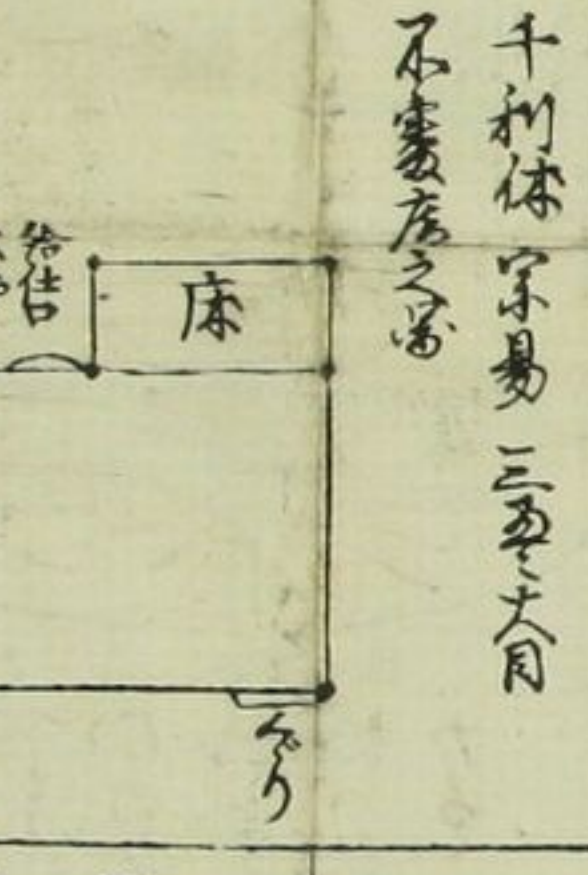 千利休 宗易 三畳大目
不審庵之図
床
給仕口
くゞり